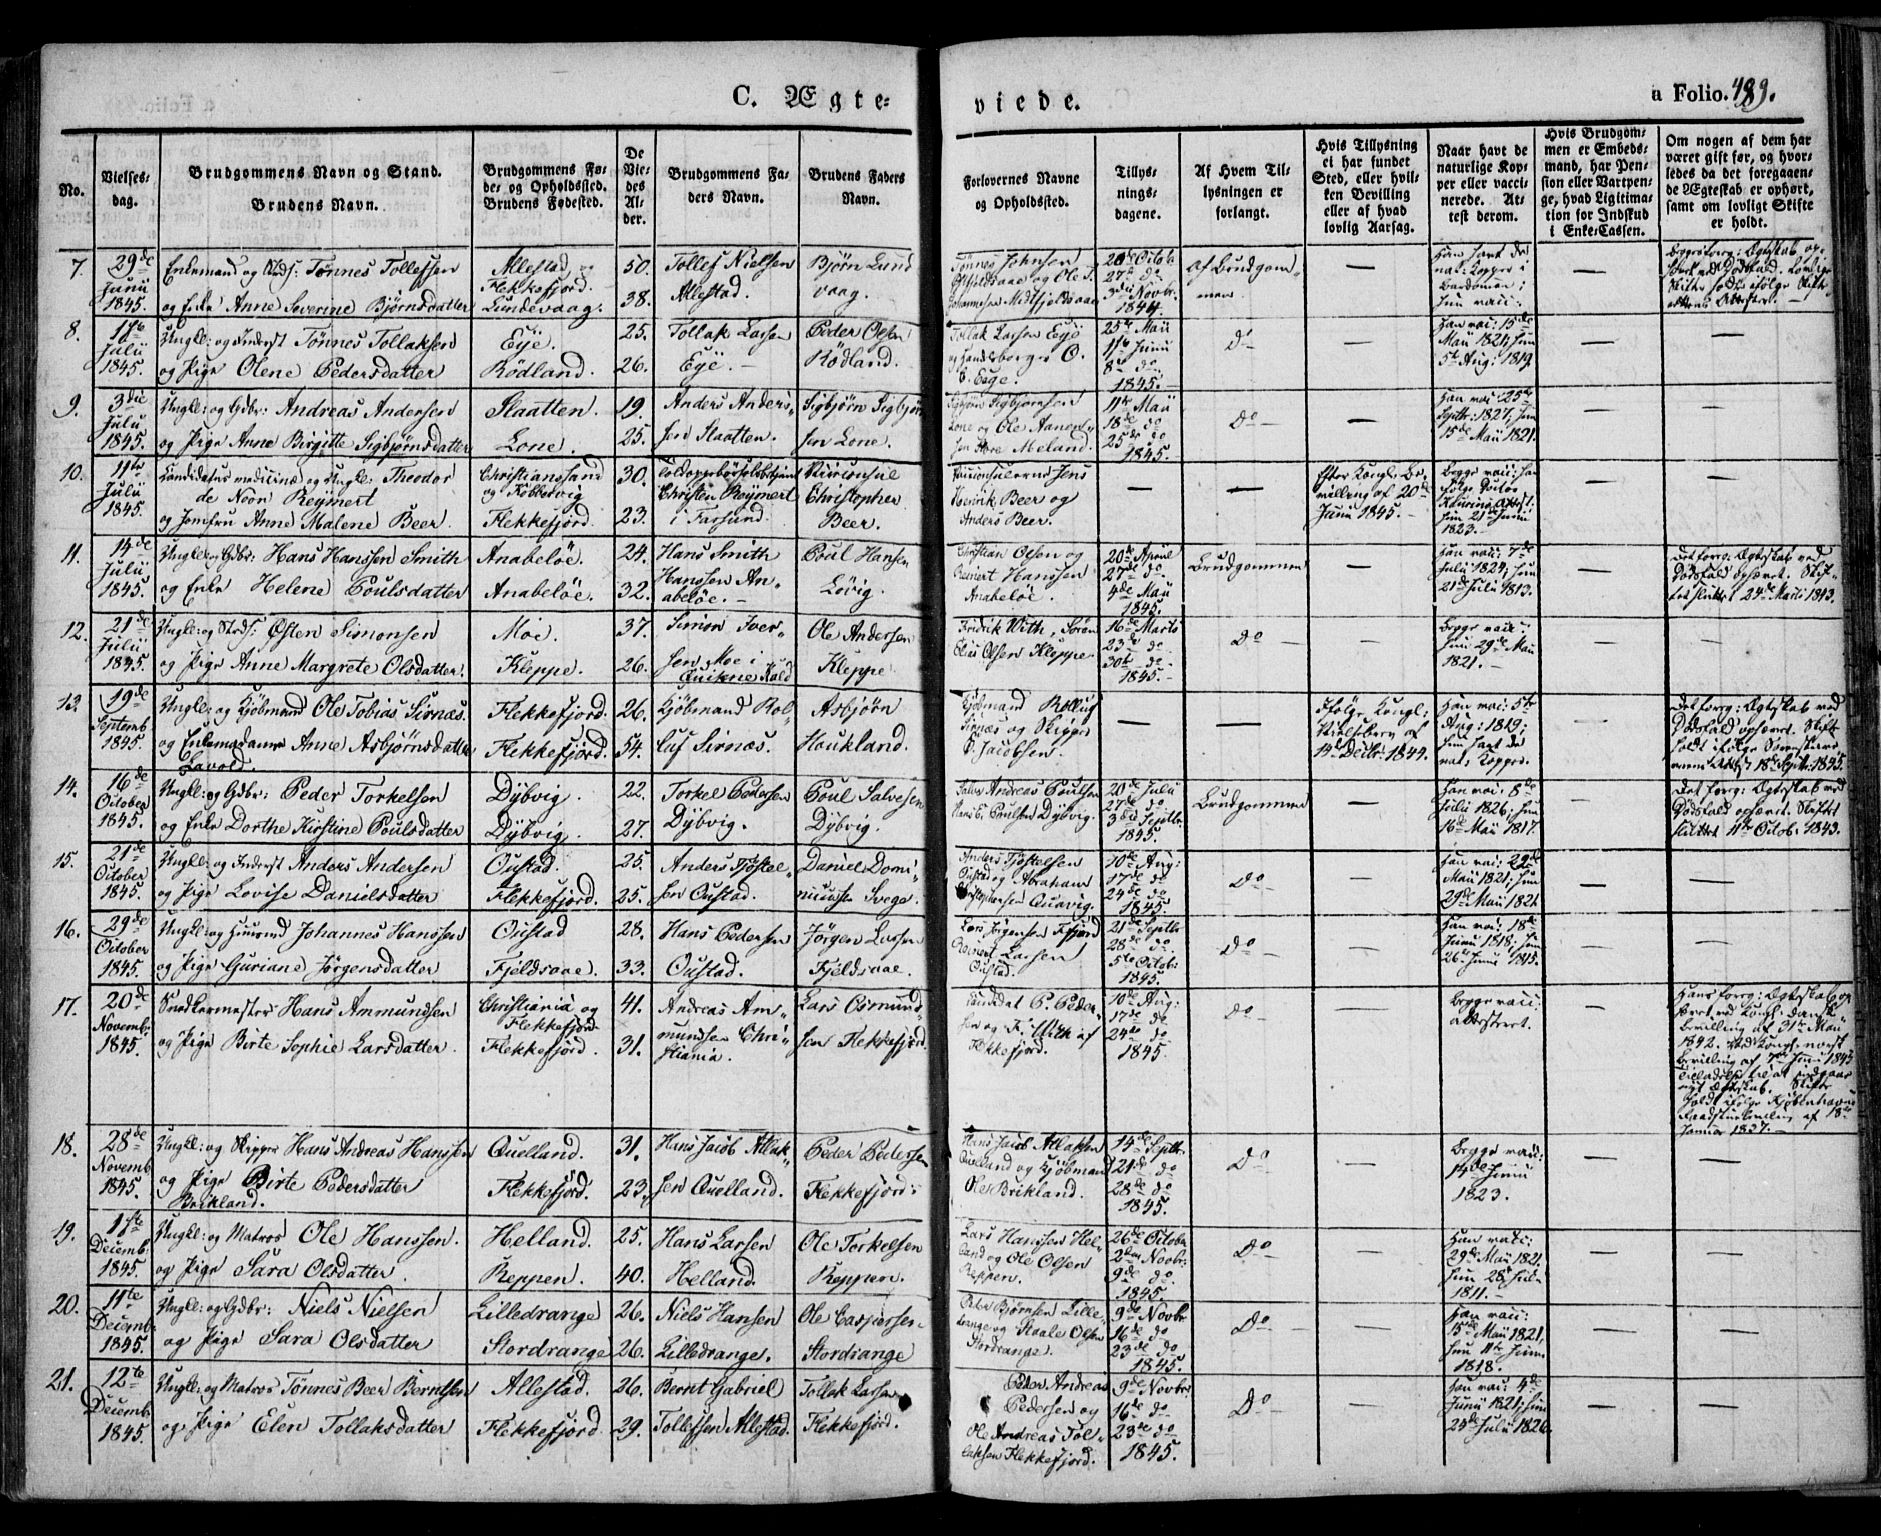 C. Ægte-
viede.
a Folio. 489.
No.
Vielses-
dag.
Brudgommens Navn og Stand.
Brudens Navn.
Brudgommens Fø-
de- og Opholdssted.
Brudens Fødested.
De
Vie-
des
Al-
der.
Brudgommens Fa-
ders Navn.
Brudens Faders
Navn.
Forlovernes Navne
og Opholdssted.
Tillys-
nings-
dagene.
Af Hvem Til-
lysningen er
forlangt.
Hvis Tillysning
ei har fundet
Sted, eller hvil-
ken Bevilling
eller af hvad
lovlig Aarsag.
Naar havt de
naturlige Kop-
per eller vacci-
nerede. At-
test derom.
Hvis Brudgom-
men er Embeds-
mand, har Pen-
sion eller Vartpen-
ge, hvad Ligitima-
tion for Indskud
i Enke-Cassen.
Om nogen af dem har
været gift før, og hvor-
ledes da det foregaaen-
de Ægteskab er ophørt,
samt om lovligt Skifte
er holdt.
7.
29de
Junii
1845.
Enkemand og Tønnes Tollefsen
og Enke Anne Severine Bjørnsdatter
Allestad
Flekkefjord.
Lundevaag.
50.
38.
Tollef Nielsen
Allestad.
Bjørn Lund
vaag.
Tønnes Johnsen
Johannesen Midtfjeldsaae
20de Octob
27de do
3die Novbr.
1844.
Af Brudgom-
men.
—
Han havt de
nat: Kopper i
Bardommen;
hun vacc:
—
8.
1ste
Julii
1845.
Ungkl: og Inderst Tønnes Tollaksen
og Pige Olene Pedersdatter
Eye.
Rødland.
25.
26.
Tollak Larsen
Eye. —
Peder Olsen
Rødland.
Tollak Larsen Eye
og Handelsborger O.
Eege.
25de Maii
1ste Junii
8de do
1845.
do
—
Han vac: 15de
Maii 1824, hun
5te Aug: 1819.
—
—
9.
3die
Julii
1845.
Ungkl: og Gdbr: Andreas Andersen
og Pige Anne Birgitte Sigbjørnsdatter
Slaatten.
Lone.
19.
25.
Anders Anders-
sen Slaatten.
Sigbjørn Sigbjørn
sen Lone.
Sigbjørn Sigbjørnsen
Lone og Ole Aanen-
sen Store Meland.
11te Maii
18de do
25de do
1845.
Do
—
Han vac: 25de
Septbr: 1827, hun
15de Maii 1821.
—
—
10.
11te
Julii
1845.
Kandidatus medicine og Ungk: Theodor
de Noðn Reymert
og Jomfru Anne Malene Beer.
Christianssand
og Fobbervig
Flekkefjord.
30.
23.
Toldoppebørselsbetjent
Christen Reymert
i Farsund.
Viceconsul
Christopher
Beer.
Viceconsulerne Jens
Henrik Beer og
Anders Beer.
—
—
Efter Kongl: Be-
villing af 20de
Junii 1845.
Begge vacc: han
ifølge
hun 21de Junii
1823.
—
—
11.
14de
Julii
1845.
Ungkl: og Gdbr: Hans Hanssen Smith
og Enke Helene Poulsdatter
Anabeløe.
Anabeløe.
24.
32.
Hans Smith
Hanssen An-
abeløe. —
Poul Hansen
Løvig.
Christian Olsen og
Reinert Hanssen
Anabeløe.
20de April
27de do
4de Maii
1845.
Brudgommen
—
Han vac: 7de
Julii 1824; hun
21de Julii 1813.
—
Det forrg: Ægteskab ved
Dødsfald ophævet. Skif-
tet sluttet 24de Marti 1843.
12.
21de
Julii
1845.
Ungkl: og Østen Simonsen
og Pige Anne Margrete Olsdatter.
Moe.
Kleppe.
37.
26.
Simon Iver-
sen Moe i
Qvikne Kald
Ole Andersen
Kleppe
Fridrik With, Søren
Elias Olsen Kleppe.
16de Marts
23de do
30te do
1845.
Do
—
Begge vacc:
hun 29de Maii
1821. —
—
—
13.
19de
Septemb
1845.
Ungkl: og Kjøbmand Ole Tobias Sirnæs.
og Enkemadamme Anne Asbjørnsdatter
Lavold.
Flekkefjord.
Flekkefjord.
26.
54.
Kjøbmand Rol-
luf Sirnæs.
Asbjørn
Houkland.
Kjøbmand Rolluf
Sirnæs og Skipper
P. Jacobsen.
—
—
Ifølge Kongl:
af
14de Decbr: 1844.
Han vac: 5te
Aug: 1819;
hun havt de
nat: Kopper.
—
Det forrg: Ægteskab ved
Dødsfald ophævet. Skift
holdt ifølge
Attest 18de Septbr: 1845.
14.
16de
October
1845.
Ungkl: og Gdbr: Peder Torkelsen
og Enke Dorthe Kirstine Poulsdatter
Dybvig.
Dybvig.
22.
27.
Torkel Pedersen
Dybvig.
Poul Salvesen
Dybvig.
Salve Andreas Poulsen
Hans E. Poulsen Dybvig.
20de Julii
27de do
3die Septbr:
1845.
Brudgommen
—
Han vac: 8de
Julii 1826; hun
16de Maii 1817.
—
Det forrg: Ægteskab ved
Dødsfald ophævet. Skiftet
sluttet 11te Octob: 1843.
15.
21de
October
1845.
Ungkl: og Inderst Anders Andersen
og Pige Lovise Danielsdatter
Oustad.
Flekkefjord.
25.
25.
Anders Tjøstel-
sen Oustad.
Daniel Domi-
nicusen Svege.
Anders Tjøstelsen
Oustad og Abraham
Christophersen Quavig.
10de Aug:
17de do
24de do
1845.
Do
—
Han vac: 29de
Maii 1821; hun
29de Maii 1821
—
—
16.
29de
October
1845.
Ungkl: og Huusmd Johannes Hanssen
og Pige Guriane Jørgensdatter
Oustad
Fjeldsaae.
28.
33.
Hans Pedersen
Oustad.
Jørgen Larsen
Fjeldsaae.
Lars Jørgensen
Reinert Larsen
Oustad.
21de Septbr
28de do
5te Octob:
1845.
do
—
Han vac: 18de
Junii 1818, hun
26de Junii 1815.
—
—
17.
20de
Novembr
1845.
Snedkermester Hans Ammundsen
og Pige Birte Sophie Larsdatter.
Christiania og
Flekkefjord
Flekkefjord.
41.
31.
Andreas Am-
mundsen Chri-
stiania.
Lars Osmund-
sen Flekkefjord.
Kandidat P. Peder-
sen og F. With af
Flekkefjord.
10de Aug:
17de do
24de do
1845.
do
—
Begge vacc:
attesteret.
—
Hans forrg: Ægteskab op-
hævet ved Kongl: dansk
Bevilling af 31te Maii
1842. Ved Kongl: norsk
Bevilling af 7de Junii 1845
tilladelse til at indgaae
nyt Ægteskab. Skifte
holdt ifølge Kjøbenhavns
af 18de
Januar 1837. —
18.
28de
Novemb
1845.
Ungkl: og Skipper Hans Andreas Hanssen
og Pige Birte Pedersdatter
Brikland.
Quelland.
Flekkefjord.
31.
23.
Hans Jacob Atlak-
sen Quelland.
Peder Pedersen
Flekkefjord.
Hans Jacob Atlaksen
Quelland og Kjøbmand
Ole Brikland.
14de Septbr.
21de do
28de do
1845.
Do
—
Begge vacc:
14de Junii
1823.
—
—
19.
1ste
Decemb:
1845.
Ungkl: og Matros Ole Hanssen.
og Pige Sara Olsdatter.
Helland.
Reppen.
25.
40.
Hans Larsen
Helland.
Ole Torkelsen
Reppen.
Lars Hanssen Hel-
land og Ole Olsen
Reppen.
26de Octobr
2den Novbr:
9de do
1845.
Do
—
Han vacc:
29de Maii 1821.
hun 28de Julii
1811.
—
—
20.
11te
Decemb:
1845.
Ungkl: og Gdbr: Niels Nielsen
og Pige Sara Olsdatter
Lilledrange
Stordrange
26.
26.
Niels Hansen
Lilledrange.
Ole Caspersen
Stordrange
Peder Bjørnsen Lille-
drange og Staale Olsen
Stordrange.
9de Novbr
16de do
23de do
1845.
Do
—
Han vacc:
15de Maii 1821,
hun 11te Junii
1818.
—
—
21.
12te
Decemb:
1845.
Ungkl: og Matros Tønnes Beer Berntsen
og Pige Elen Tollaksdatter
Allestad.
Flekkefjord.
26.
29.
Bernt Gabriel
Tollefsen Allestad.
Tollak Larsen
Flekkefjord.
Peder Andreas
Pedersen og
Ole Andreas Tol-
laksen Flekkefjord.
9de Novbr:
16de do
23de do
1845.
Do
—
Han vac: 4de
Junii 1821; hun
24de Julii 1826.
—
—